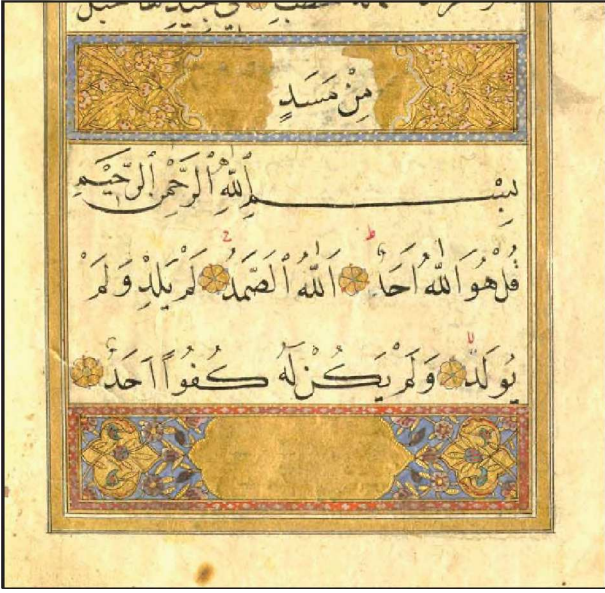 مِنْ مَسَدٍ
بِسْمِ اللّٰهِ الرَّحْمٰنِ الرَّحٖيمِ
قُلْ هُوَ اللّٰهُ اَحَدٌ ط اَللّٰهُ الصَّمَدُ ج لَمْ يَلِدْ وَلَمْ
يُولَدْ لا وَلَمْ يَكُنْ لَهُ كُفُوًا اَحَدٌ